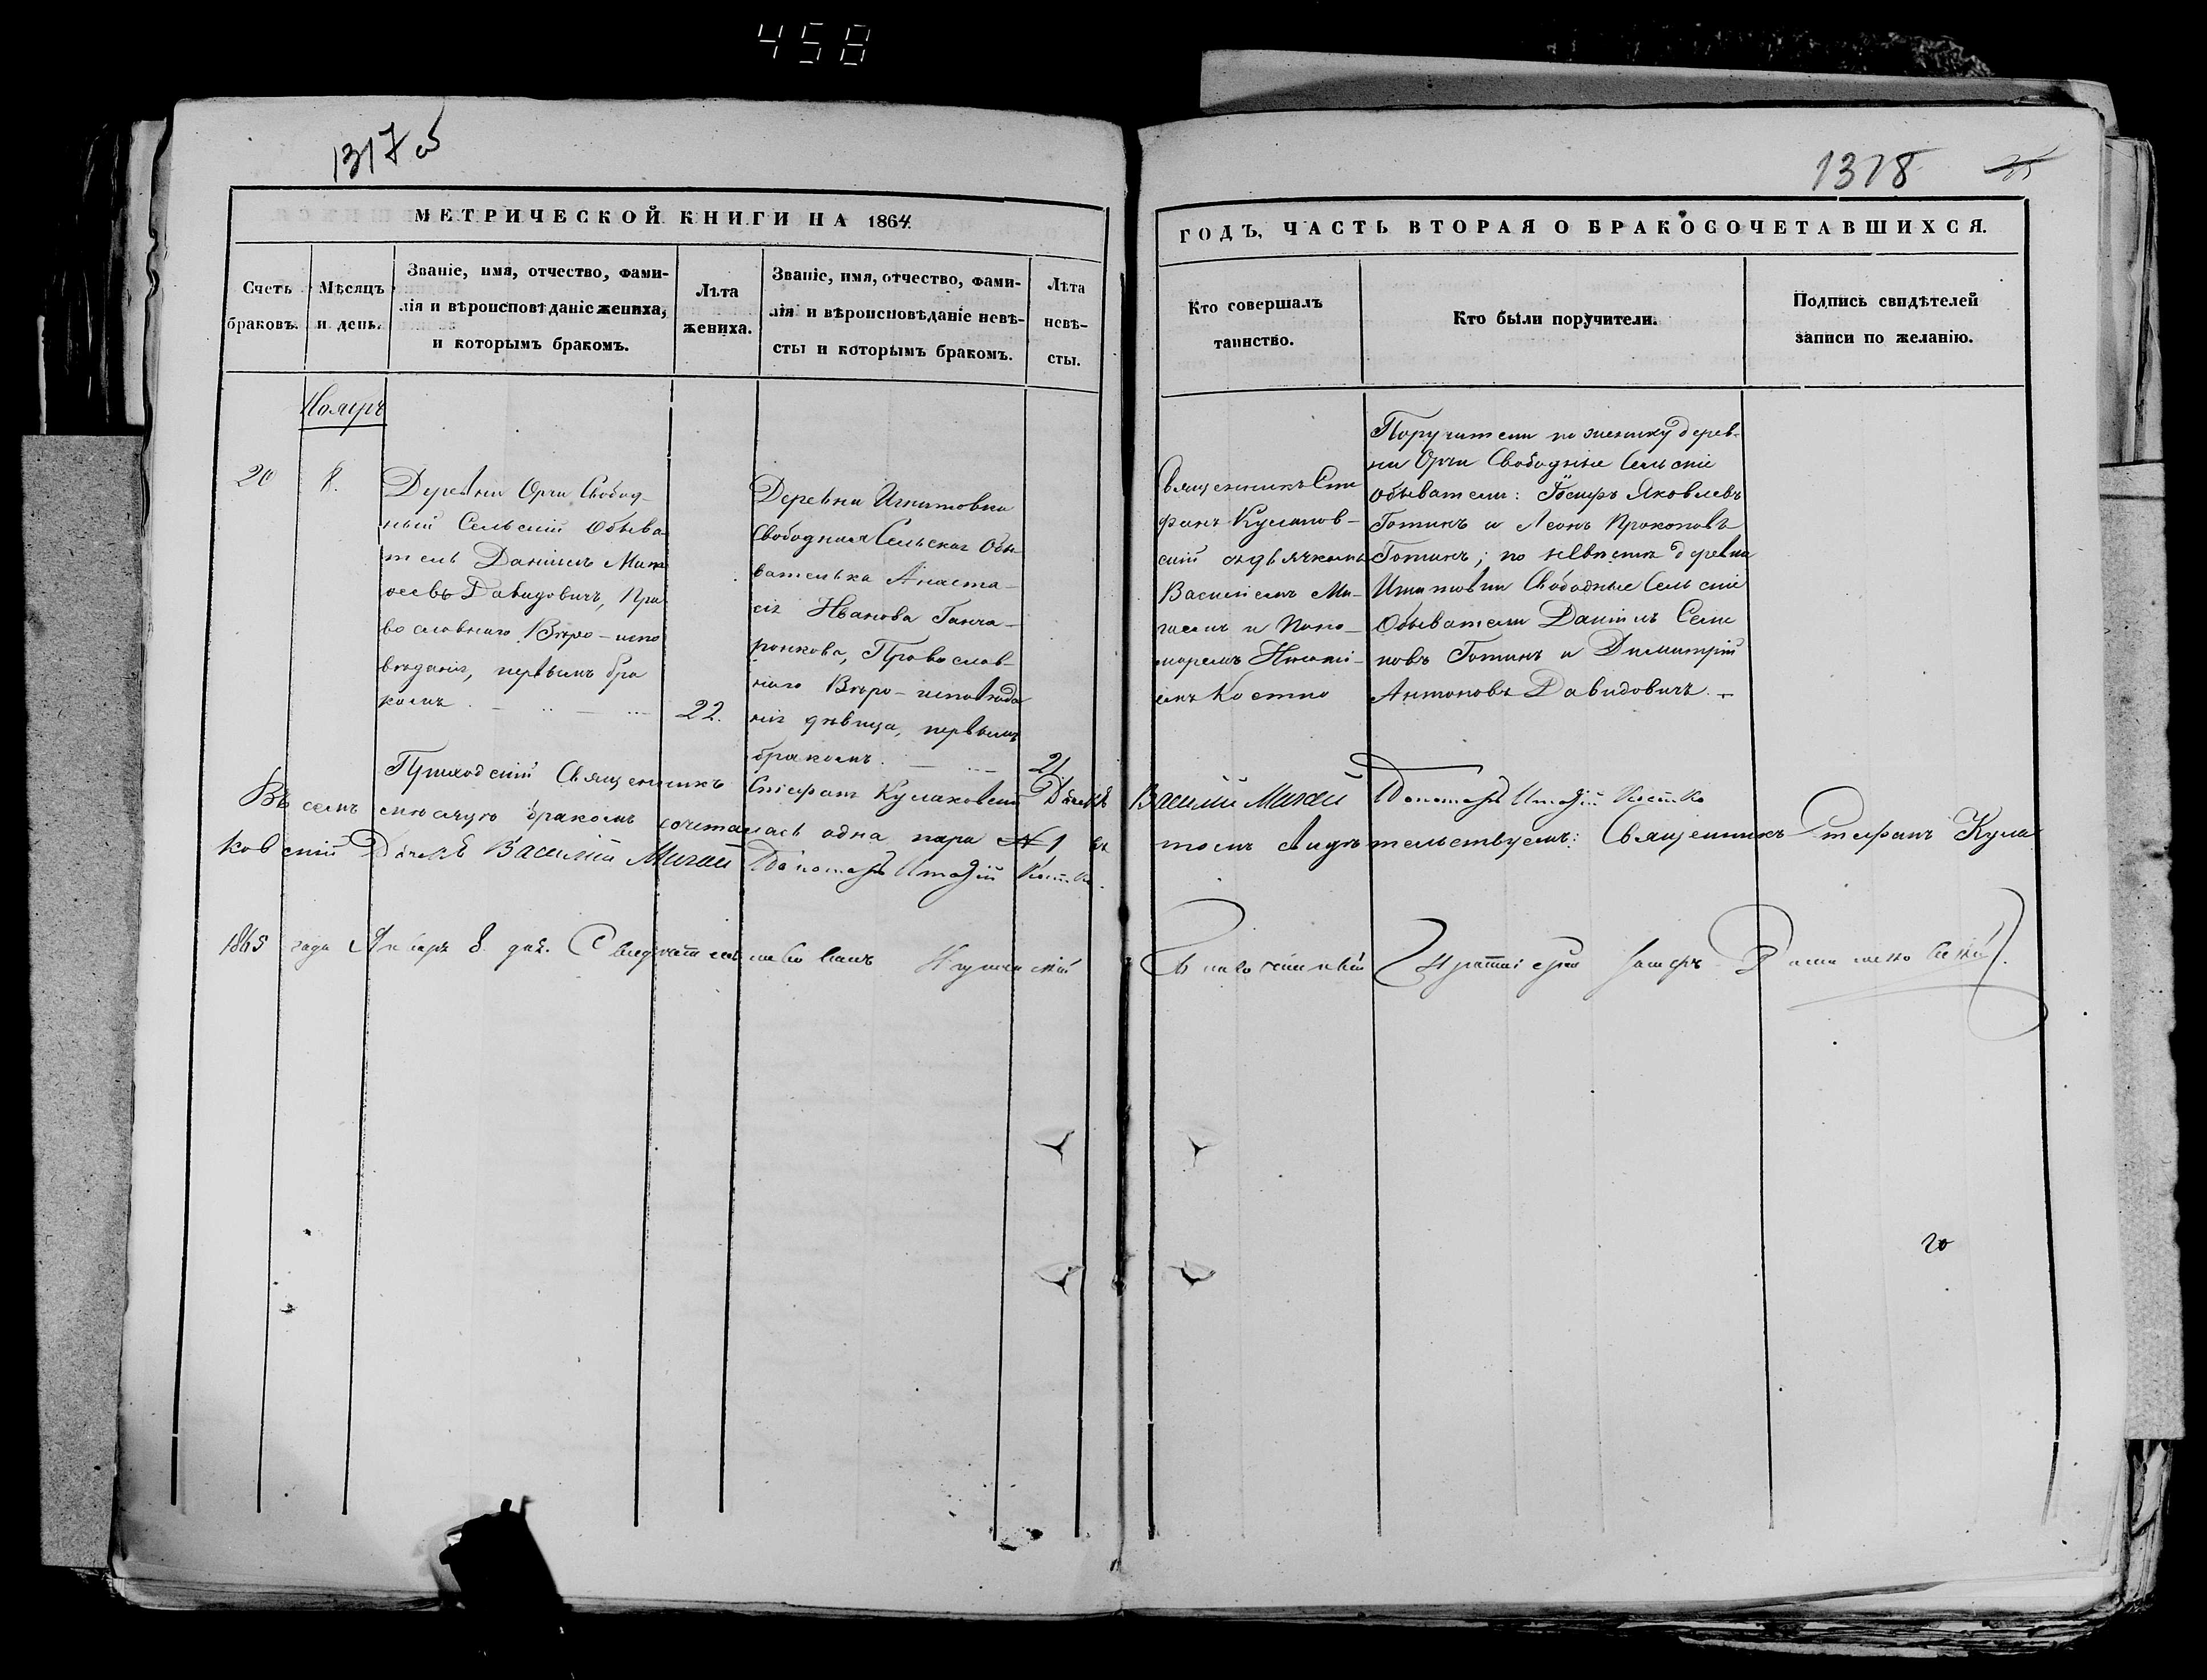 458
1317 об
1318
МЕТРИЧЕСКОЙ КНИГИ НА 1864.
ГОДЪ, ЧАСТЬ ВТОРАЯ О БРАКОСОЧЕТАВШИХСЯ.
Счетъ
браковъ.
Мѣсяцъ
и день.
Званіе, имя, отчество, фами-
лія и вѣроисповѣданіе жениха,
и которымъ бракомъ.
Лѣта
жениха.
Званіе, имя, отчество, фами-
лія и вѣроисповѣданіе невѣ-
сты и которымъ бракомъ.
Лѣта
невѣ-
сты.
Кто совершалъ
таинство.
Кто были поручители.
Подпись свидѣтелей
записи по желанію.
Ноябрь
20
8.
Деревни Орги Свобод-
ный Сельскій Обыва
тель Даніилъ
Давидовичъ, Пра
вославнаго Вѣро-испо
вѣданія, первымъ бра
комъ.
22.
Деревни Игнатовки
Свободная Сельская Обы
вателька Анаста-
сія Иванова Ганча-
ронкова, Православ-
наго Вѣро-исповѣда
нія дѣвица, первымъ
бракомъ.
21.
Священникъ Сте
фанъ Кулаков-
скій съ дьячкомъ
Василіемъ Ми-
гаемъ и Поно-
маремъ
Костко
Поручители по жениху дерев-
ни Орги Свободные Сельскіе
Обыватели: Іосифъ Яковлевъ
Готинъ и Леонъ Прокоповъ
Готинъ; по невѣстѣ деревни
Игнатовки Свободные Сельскіе
Обыватели Даніилъ Семе
новъ Готинъ и Димитрій
Антоновъ Давидовичъ.
Приходскій Священникъ Стефанъ Кулаковскій Дьячекъ Василій Мигай Пономарь Костко
Въ семъ мѣсяцѣ бракомъ сочеталась одна пара № 1 въ томъ свидѣтельствуемъ: Священникъ Стефанъ Кула
ковскій Дьячекъ Василій Мигай Пономарь Костко.
1865 года Января 8 дня. Свидѣтельствовалъ Благочинный
20